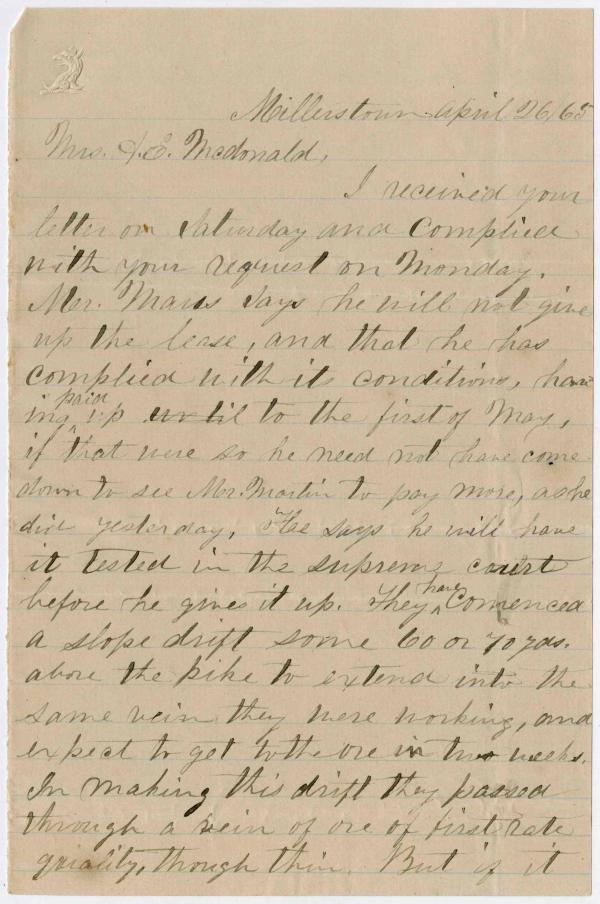 Millerstown April 26/65
Mrs. J.E. Mcdonald,
I received your
letter on Saturday and Complied
with your request on Monday.
Mr. Maus says he will not give
up the lease, and that he has
complied with its conditions, hav
ing paid up until to the first of May,
if that were so he need not have come
down to see Mr. Martin to pay more, as he
did yesterday. He says he will have
it tested in the supreme court
before he gives it up. They have Comenced
a slope drift some 60 or 70 yds.
above the pike to extend into the
same vein they were working, and
expect to get to the ore in two weeks.
In making this drift they passed
through a vein of ore of first rate
quality, though thin. But if it